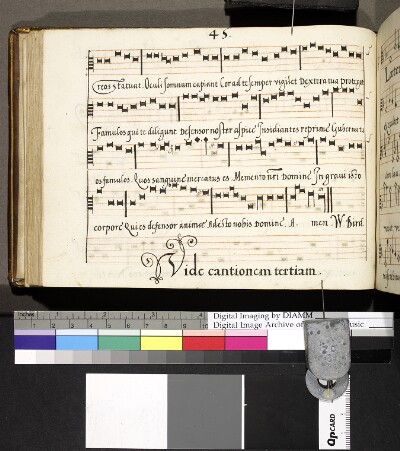 45.
statuat. Oculi somnum capiant Cor ad te semper vigilet Dextera tua protegat
Famulos qui te diligunt Defensor noster aspice Insidiantes reprime Guberna tu
os famulos. Quos sanguine mercatus es Memento nrī Domine In gravi isto
corpore Qui es defensor animæ Adesto nobis Domine. A- men. W. Bird.
Vide cantionem tertiam.
inches 1 2 3 4
Digital Imaging by DIAMM
Digital Image Archive of Music
QPCARD